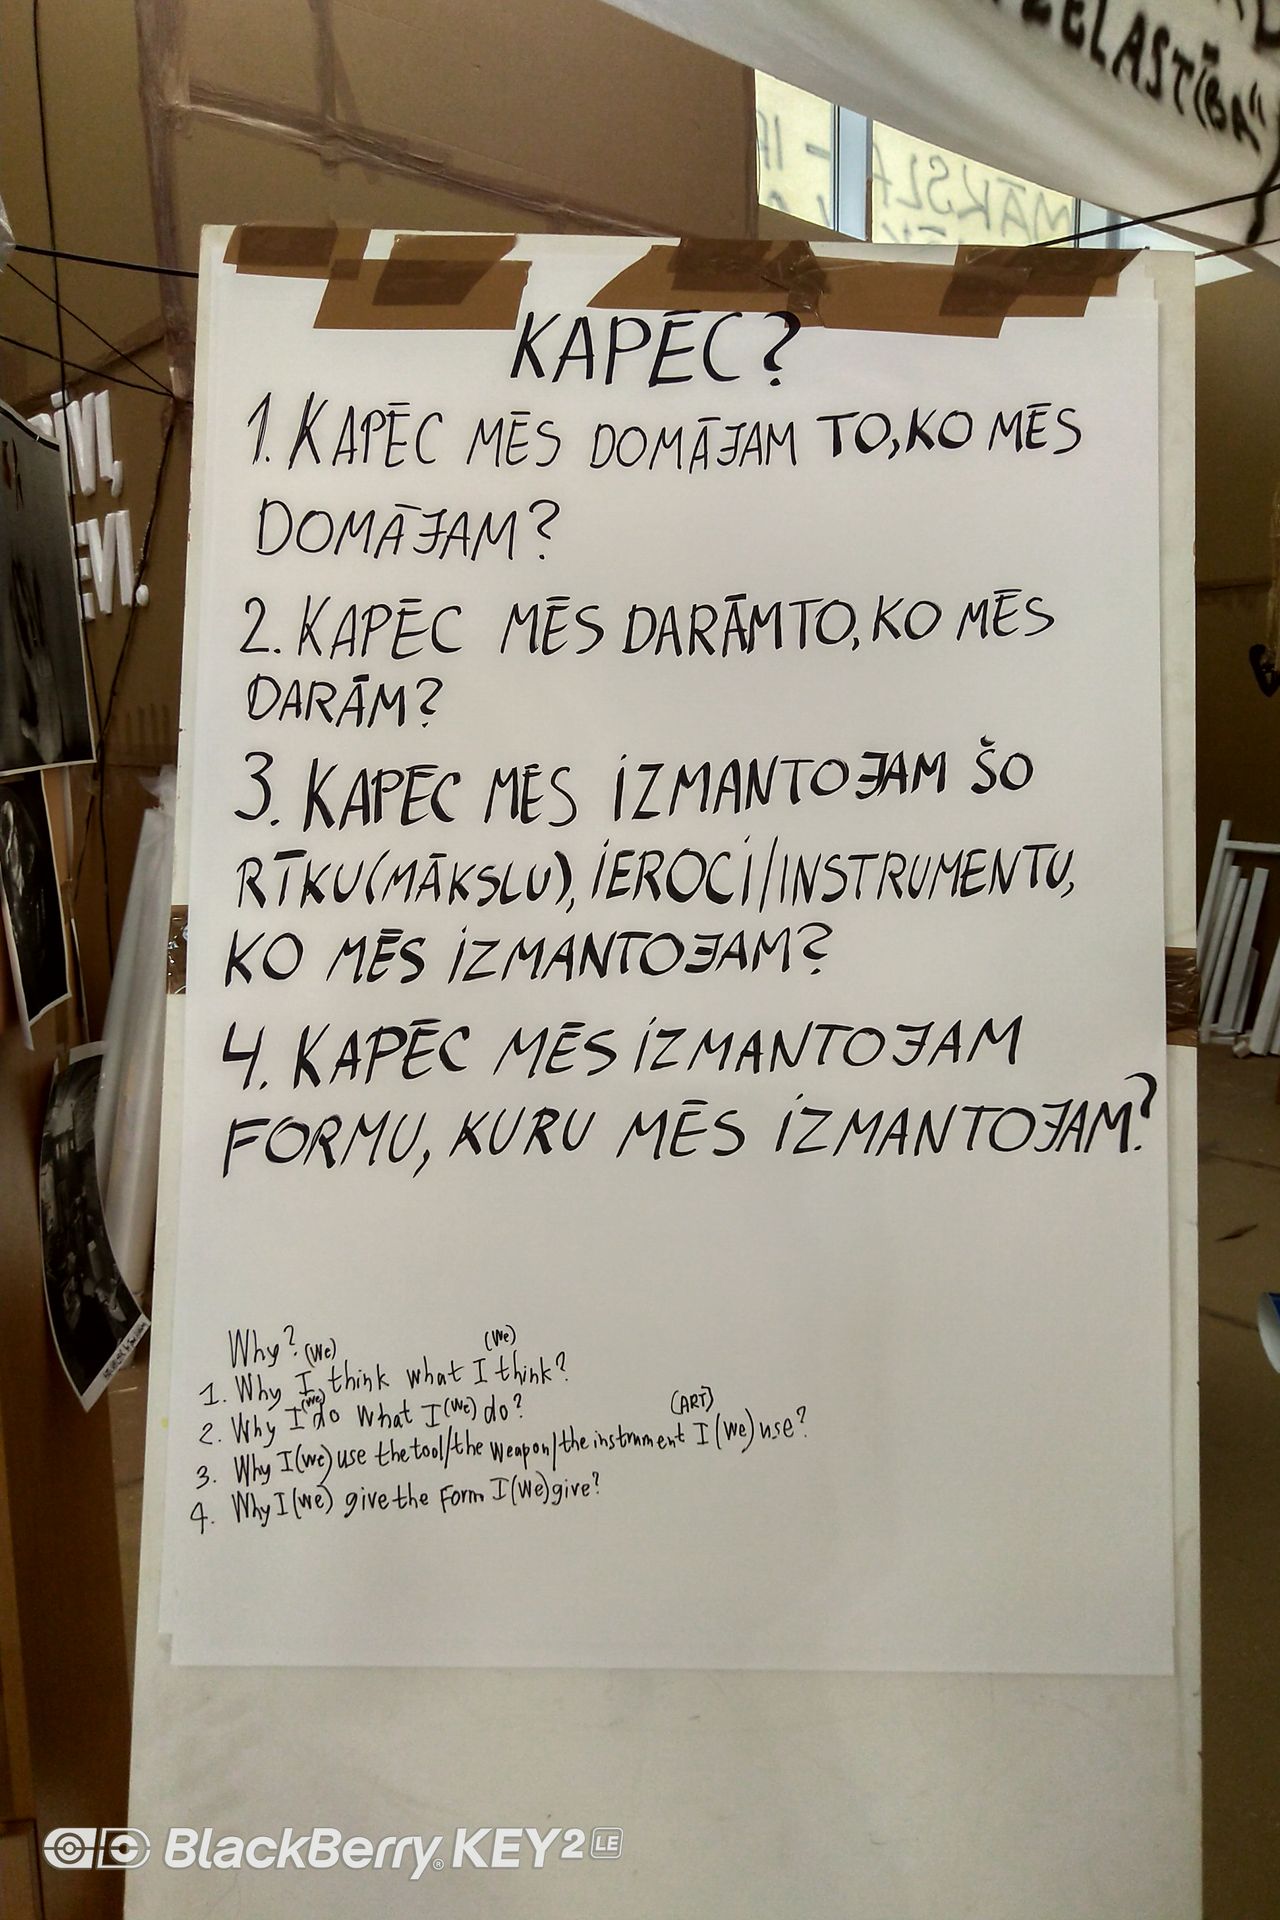 ŽĒLASTĪBA"
MĀKSLA - IR
ĪNI,
EVI.
KAPĒC?
1. KAPĒC MĒS DOMĀJAM TO, KO MĒS
DOMĀJAM?
2. KAPĒC MĒS DARĀM TO, KO MĒS
DARĀM?
3. KAPĒC MĒS IZMANTOJAM ŠO
RĪKU (MĀKSLU), IEROCI/INSTRUMENTU,
KO MĒS IZMANTOJAM?
4. KAPĒC MĒS IZMANTOJAM
FORMU, KURU MĒS IZMANTOJAM?
Why?
1. Why I (We) think what I (We) think?
2. Why I (We) do what I (We) do?
3. Why I (We) use the tool/the weapon/the instrument (ART) I (We) use?
4. Why I (We) give the Form I (We) give?
BlackBerry® KEY2 LE